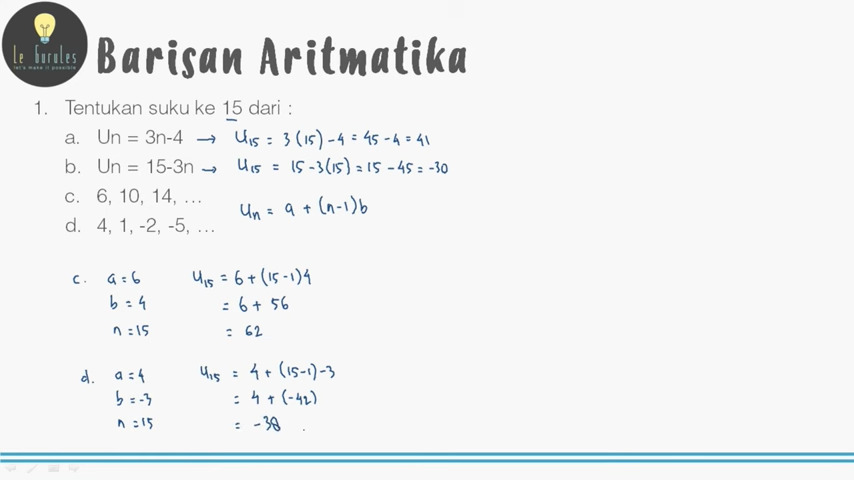 Le Gurules
let's make it possible
Barisan Aritmatika
1. Tentukan suku ke 15 dari :
a. Un = 3n-4 → U₁₅ = 3(15) - 4 = 45 - 4 = 41
b. Un = 15-3n → U₁₅ = 15 - 3(15) = 15 - 45 = -30
c. 6, 10, 14, …
Un = a + (n-1)b
d. 4, 1, -2, -5, …
c. a = 6 U₁₅ = 6 + (15-1)4
b = 4 = 6 + 56
n = 15 = 62
d. a = 4 U₁₅ = 4 + (15-1)-3
b = -3 = 4 + (-42)
n = 15 = -38